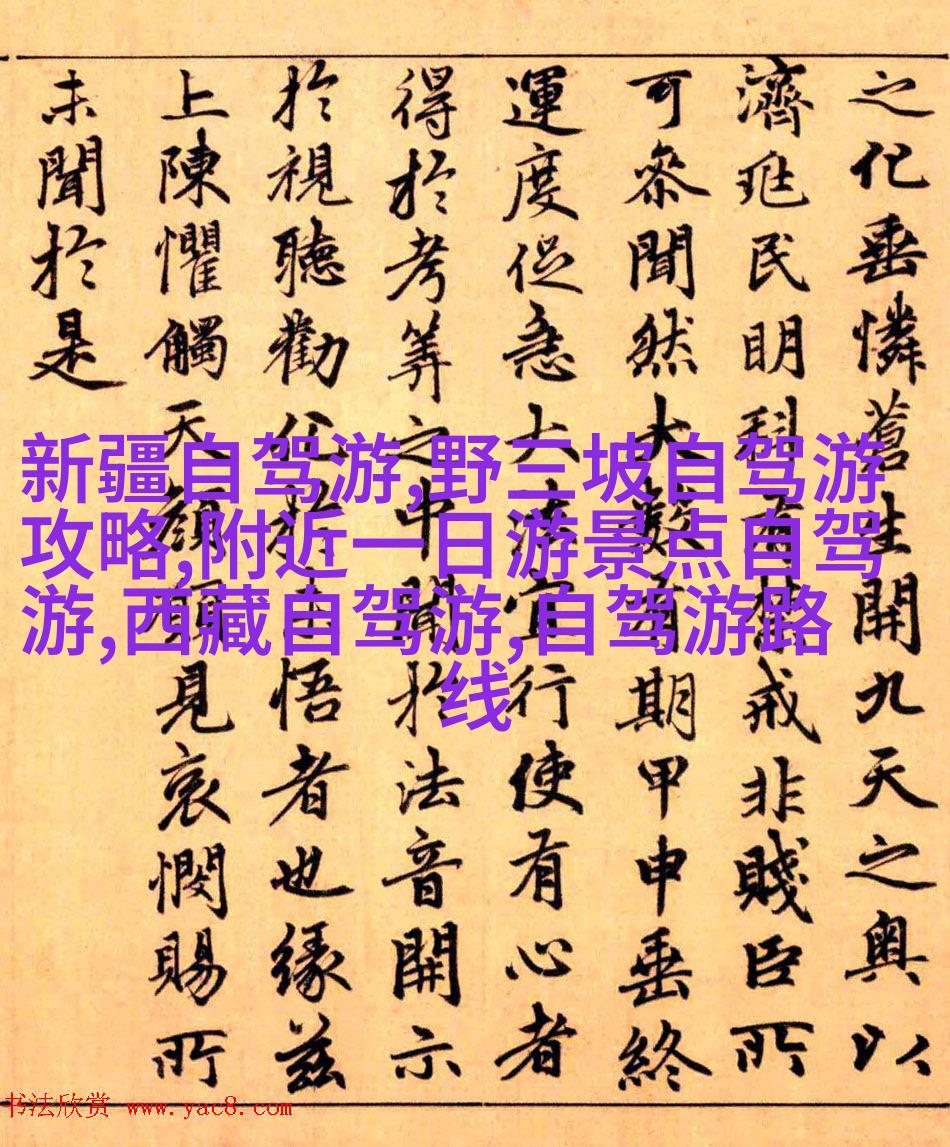 之化垂憐蒼生開九天之奥以
濟兆民明科有禁戒非賤臣所
可參聞然大數有期甲申垂終
運度促急大法宜行使有心者
得於考筭之中聞於法音開示
於視聽勸化於未悟者也緣茲
上陳懼觸天顔願見哀憫賜所
未聞於是
新疆自驾游,野三坡自驾游
攻略,附近一日游景点自驾
游,西藏自驾游,自驾游路
线
书法欣赏 www.yac8.com